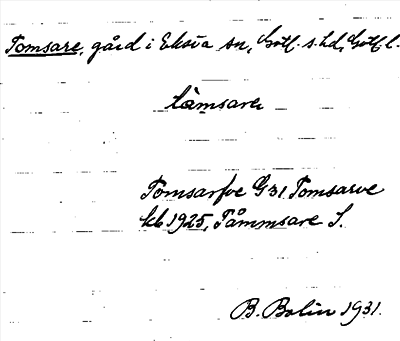 Tomsare, gård i Eksta sn, Gotl. s. hd, Gotl. l.
tåmsare
Tomsarfve G31. Tomsarve
kb 1925, Tåmmsare S.
B. Bolin 1931.